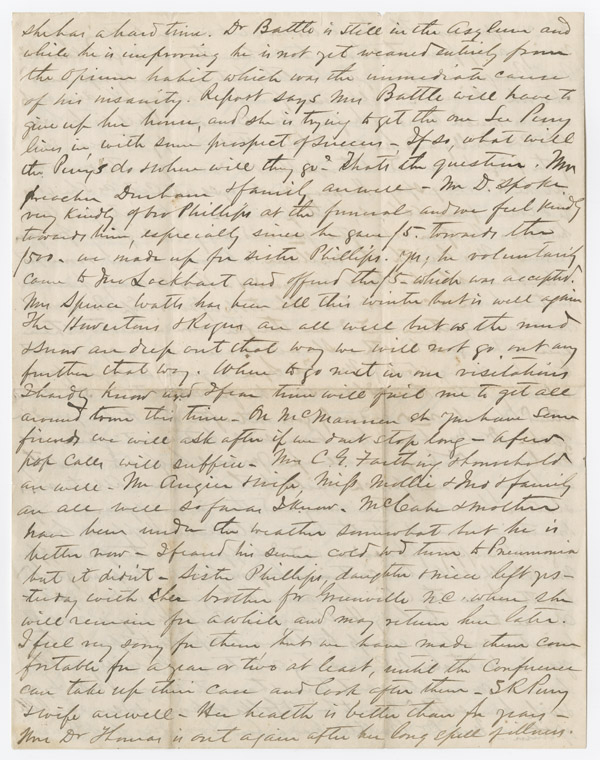 she has a hard time. Dr Battle is still in the Asylum and
while he is improving he is not yet weaned entirely from
the Opium habit which was the immediate cause
of his insanity. Report says Mrs Battle will have to
give up her house, and she is trying to get the one See Perry
lives in, with some prospect of success - If so, what will
the Perry's do & where will they go? That's the question. Mr
preacher Durham & family are well - Mr D. spoke
very kindly of bro Phillips at the funeral and we feel kindly
towards him, especially since he gave $5. towards the
$500 - we made up for sister Phillips. Yes, he voluntarily
came to Lockhart and offerd the $5 - which was accepted.
Mrs Spence Watts has been ill this winter but is well again
The & Rogers are all well but as the mud
& snow are deep out that way we will not go out any
further that way. Where to go next in our visitations
I hardly know and I fear time will fail me to get all
around town this time - On McMannen st you have some
friends we will ask after if we dont stop long - a few
pop calls will suffice - Mrs C. G. Farthing & household
are well - Mr Angier & wife, Miss Mollie & & family
are all well so far as I know - McCabe & mother
have been under the weather somewhat but he is
better now - I feard his severe cold wd turn to Pneumonia
but it didn't - Sister Phillips, daughter & niece left yes-
terday with her brother for Greenville N.C. where she
will remain for a while and may return here later.
I feel very sorry for them but we have made them com
fortable for a year or two at least, until the Conference
can take up their case and look after them - S R Perry
& wife are well - Her health is better than for years -
Mrs Dr Thomas is out again after her long spell of illness.